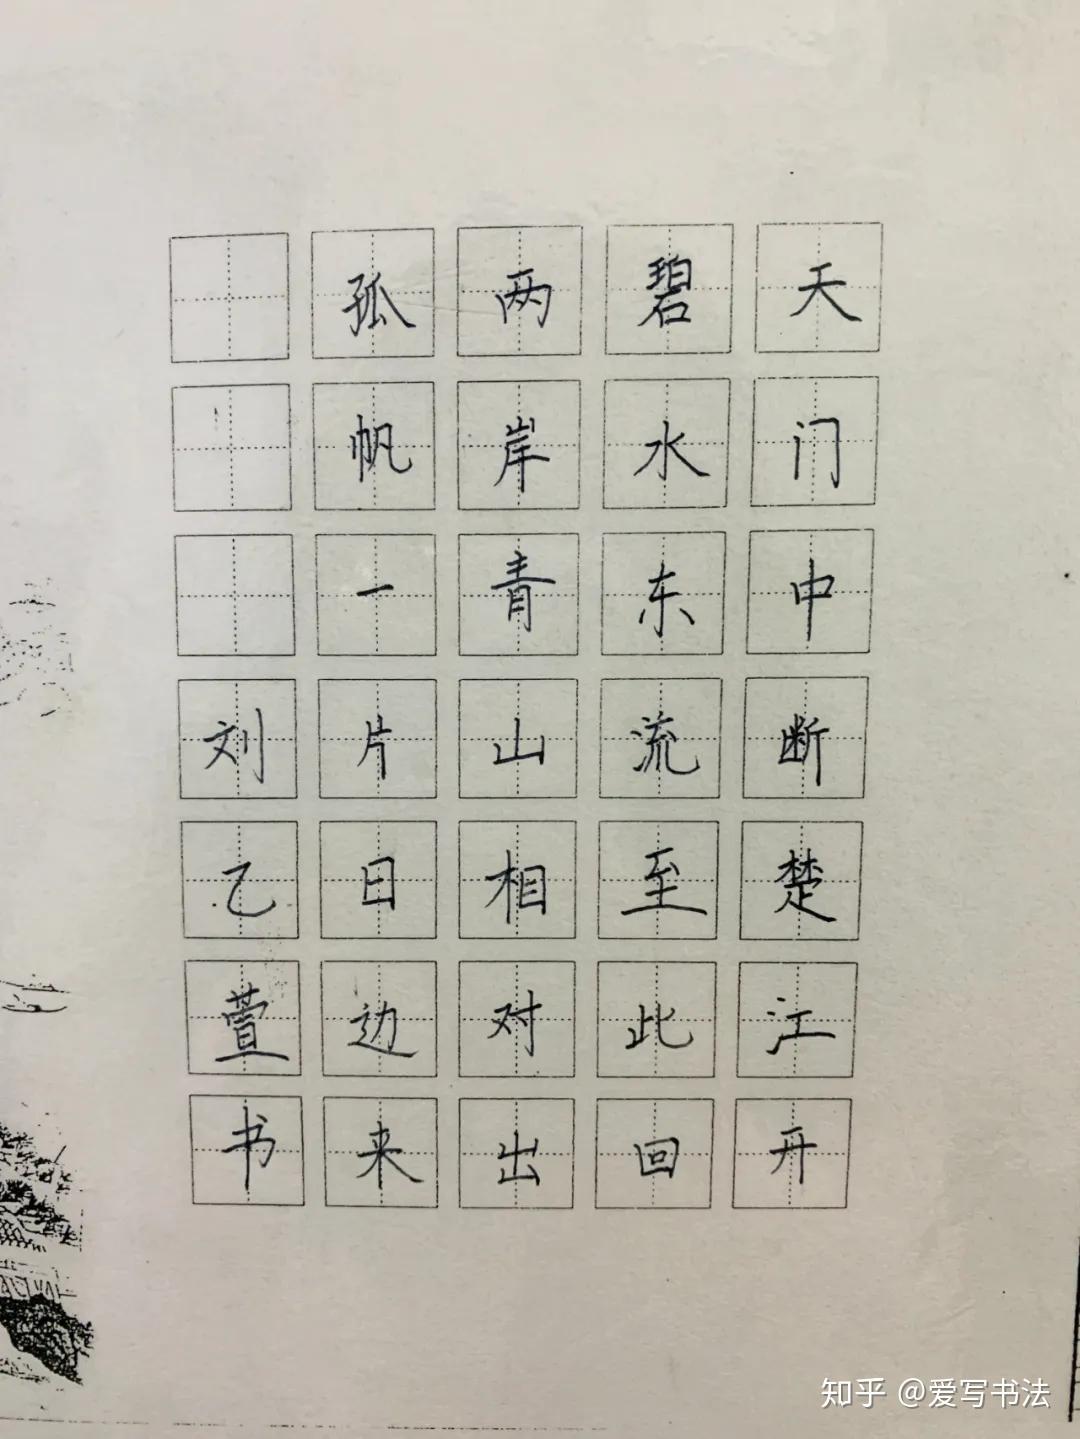 天门中断楚江开
碧水东流至此回
两岸青山相对出
孤帆一片日边来
刘乙萱书
知乎 @爱写书法